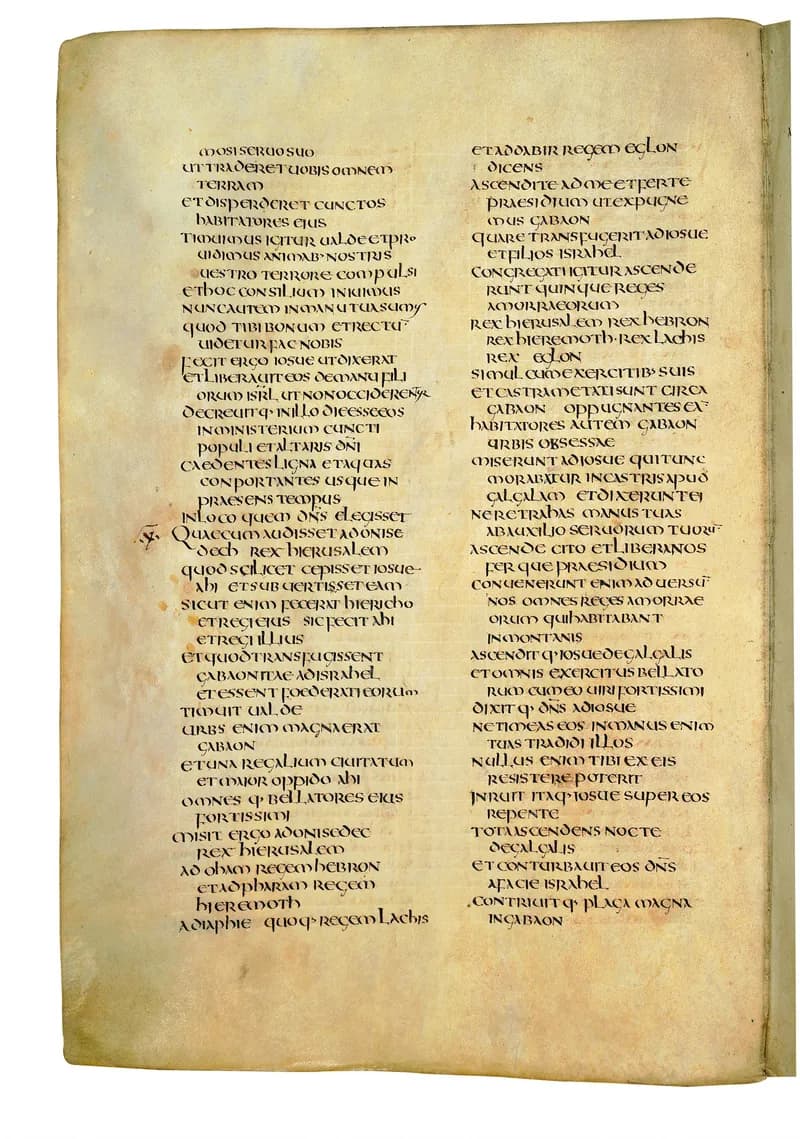 mosi seruo suo
ut traderet uobis omnem
terram
et disperderet cunctos
habitatores eius
timuimus igitur ualde et pro
uidimus animab· nostris
uestro terrore compulsi
et hoc consilium iniuimus
nunc autem in manu tua sumus
quod tibi bonum et rectū
uidetur fac nobis
fecit ergo iosue ut dixerat
et liberauit eos de manu fili
orum isrl̄ ut non occiderentur
decreuit q· in illo die esse eos
in ministerium cuncti
populi et altaris dn̄i
caedentes ligna et aquas
conportantes usque in
praesens tempus
in loco quem dn̄s elegisset
x̄
Quae cum audisset adonise
dech rex hierusalem
quod scilicet cepisset iosue
ahi et subuertisset eam
sicut enim fecerat hiericho
et regi eius sic fecit ahi
et regi illius
et quod transfugissent
gabaonitae ad israhel
et essent foederati eorum
timuit ualde
urbs enim magna erat
gabaon
et una regalium ciuitatum
et maior oppido ahi
omnes q· bellatores eius
fortissimi
misit ergo adonisedec
rex hierusalem
ad oham regem hebron
et ad pharam regem
hieremoth
ad iaphie quoq· regem lachis
et ad dabir regem eglon
dicens
ascendite ad me et ferte
praesidium ut expugne
mus gabaon
quare transfugerit ad iosue
et filios israhel
congregati igitur ascende
runt quinque reges
amorraeorum
rex hierusalem rex hebron
rex hieremoth· rex lachis
rex eglon
simul cum exercitib· suis
et castrametati sunt circa
gabaon oppugnantes eā
habitatores autem gabaon
urbis obsessae
miserunt ad iosue qui tunc
morabatur in castris apud
galgalam et dixerunt ei
ne retrahas manus tuas
ab auxilio seruorum tuorū
ascende cito et libera nos
fer que praesidium
conuenerunt enim aduersū
nos omnes reges amorrae
orum qui habitabant
in montanis
ascendit q· iosue de galgalis
et omnis exercitus bellato
rum cum eo uiri fortissimi
dixit q· dn̄s ad iosue
ne timeas eos in manus enim
tuas tradidi illos
nullus enim tibi ex eis
resistere poterit
inruit itaq· iosue super eos
repente
tota ascendens nocte
de galgalis
et conturbauit eos dn̄s
a facie israhel
contriuit q· plaga magna
in gabaon